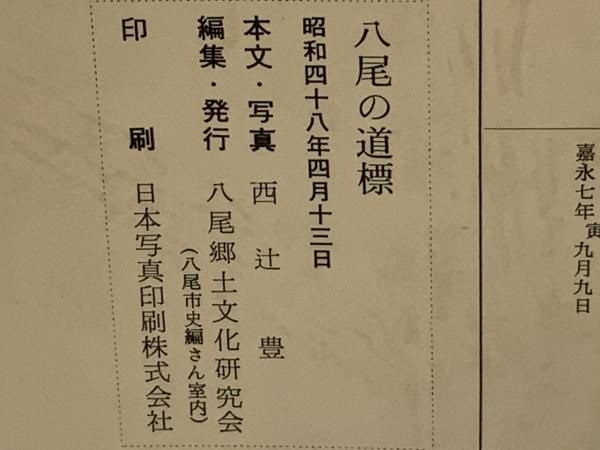 嘉永七年寅九月九日
八尾の道標
昭和四十八年四月十三日
本文・写真　西辻豊
編集・発行　八尾郷土文化研究会
（八尾市史編さん室内）
印刷　日本写真印刷株式会社